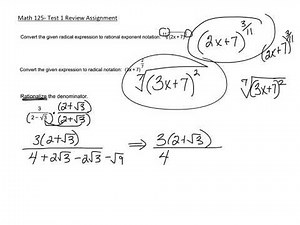 Math 125- Test 1 Review Assignment
Convert the given radical expression to rational exponent notation: (2x+7)
(2x+7)^{3/11}
(2x+7)^{3/11}
Convert the given expression to radical notation: (3x+7)^{2/7}
\sqrt[7]{(3x+7)^2}
\sqrt[7]{(3x+7)^2}
Rationalize the denominator.
3/(2-√3) · (2+√3)/(2+√3)
3(2+√3)/(4+2√3-2√3-√9) ⇒ 3(2+√3)/4